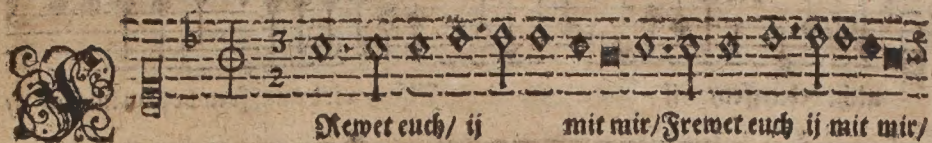 FRewet euch/ ij mit mir/Frewet euch ij mit mir/